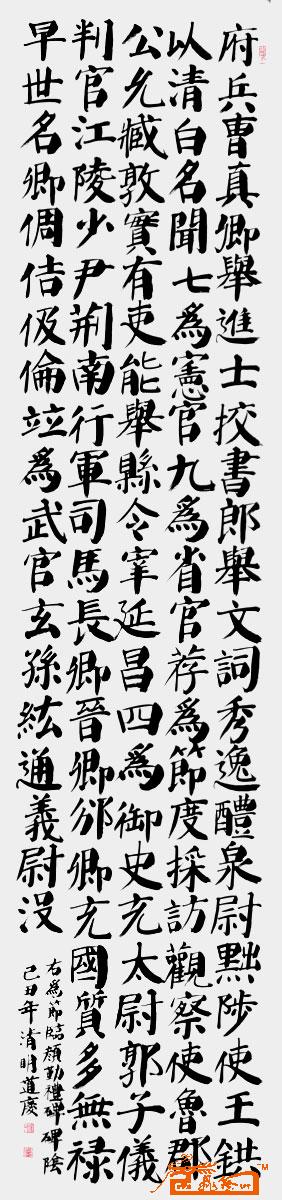 府兵曹真卿舉進士挍書郎舉文詞秀逸醴泉尉黜陟使王鉷
以清白名聞七為憲官九為省官荐為節度採訪觀察使魯郡
公允臧敦實有吏能舉縣令宰延昌四為御史充太尉郭子儀
判官江陵少尹荊南行軍司馬長卿晉卿邠卿充國質多無祿
早世名卿倜佶伋倫竝為武官玄孫紘通義尉沒
右為節臨顏勤禮碑碑陰
己丑年清明蓮慶